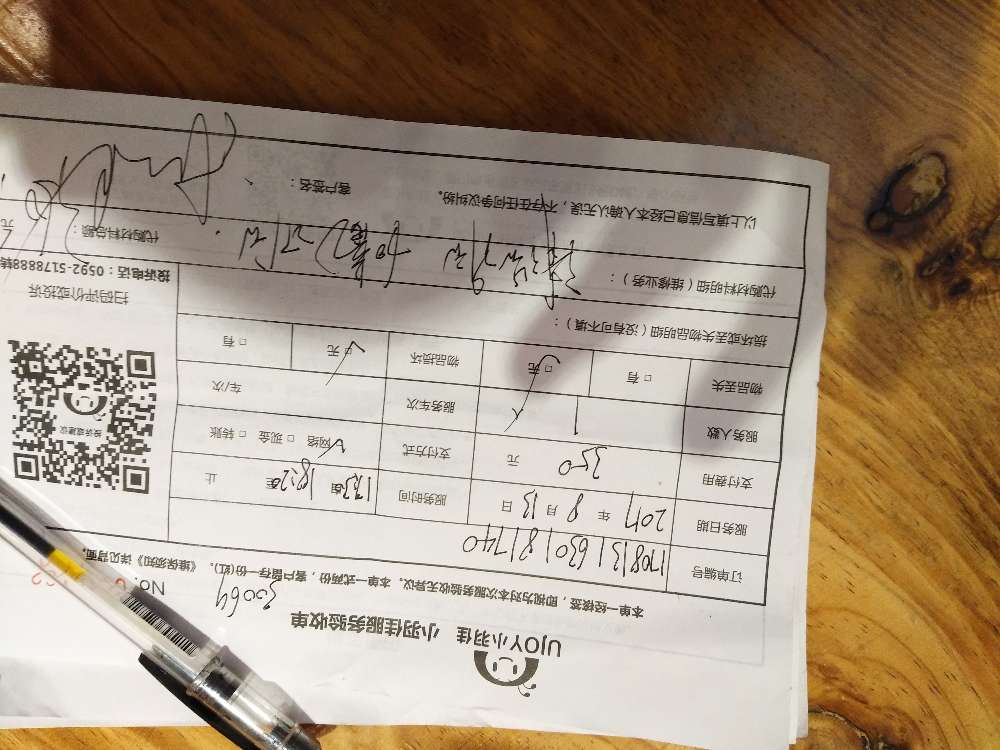 UJOY小羽佳 小羽佳服务验收单
本单一经核签,即视为对本次服务验收无异议。本单一式两份,客户留存一份(红)。《维保须知》详见背面。
30069
No.
订单编号 170813163018 1740
服务日期 2017 年 8 月 13 日 服务时间 17:30由 18:20至 止
支付费用 350 元 支付方式 网络 □ 现金 □ 转账
服务人数 1 人 服务车次 车/次
物品丢失 □ 有 □ 无 物品损坏 □ 无 □ 有
损坏或丢失物品明细(没有可不填):
代购材料明细(维修业务):
代购材料总额: 元
以上填写信息已经本人确认无误,不存在任何争议纠纷。 客户签名:
投诉或建议
扫码评价或投诉
投诉电话:0592-5178888转